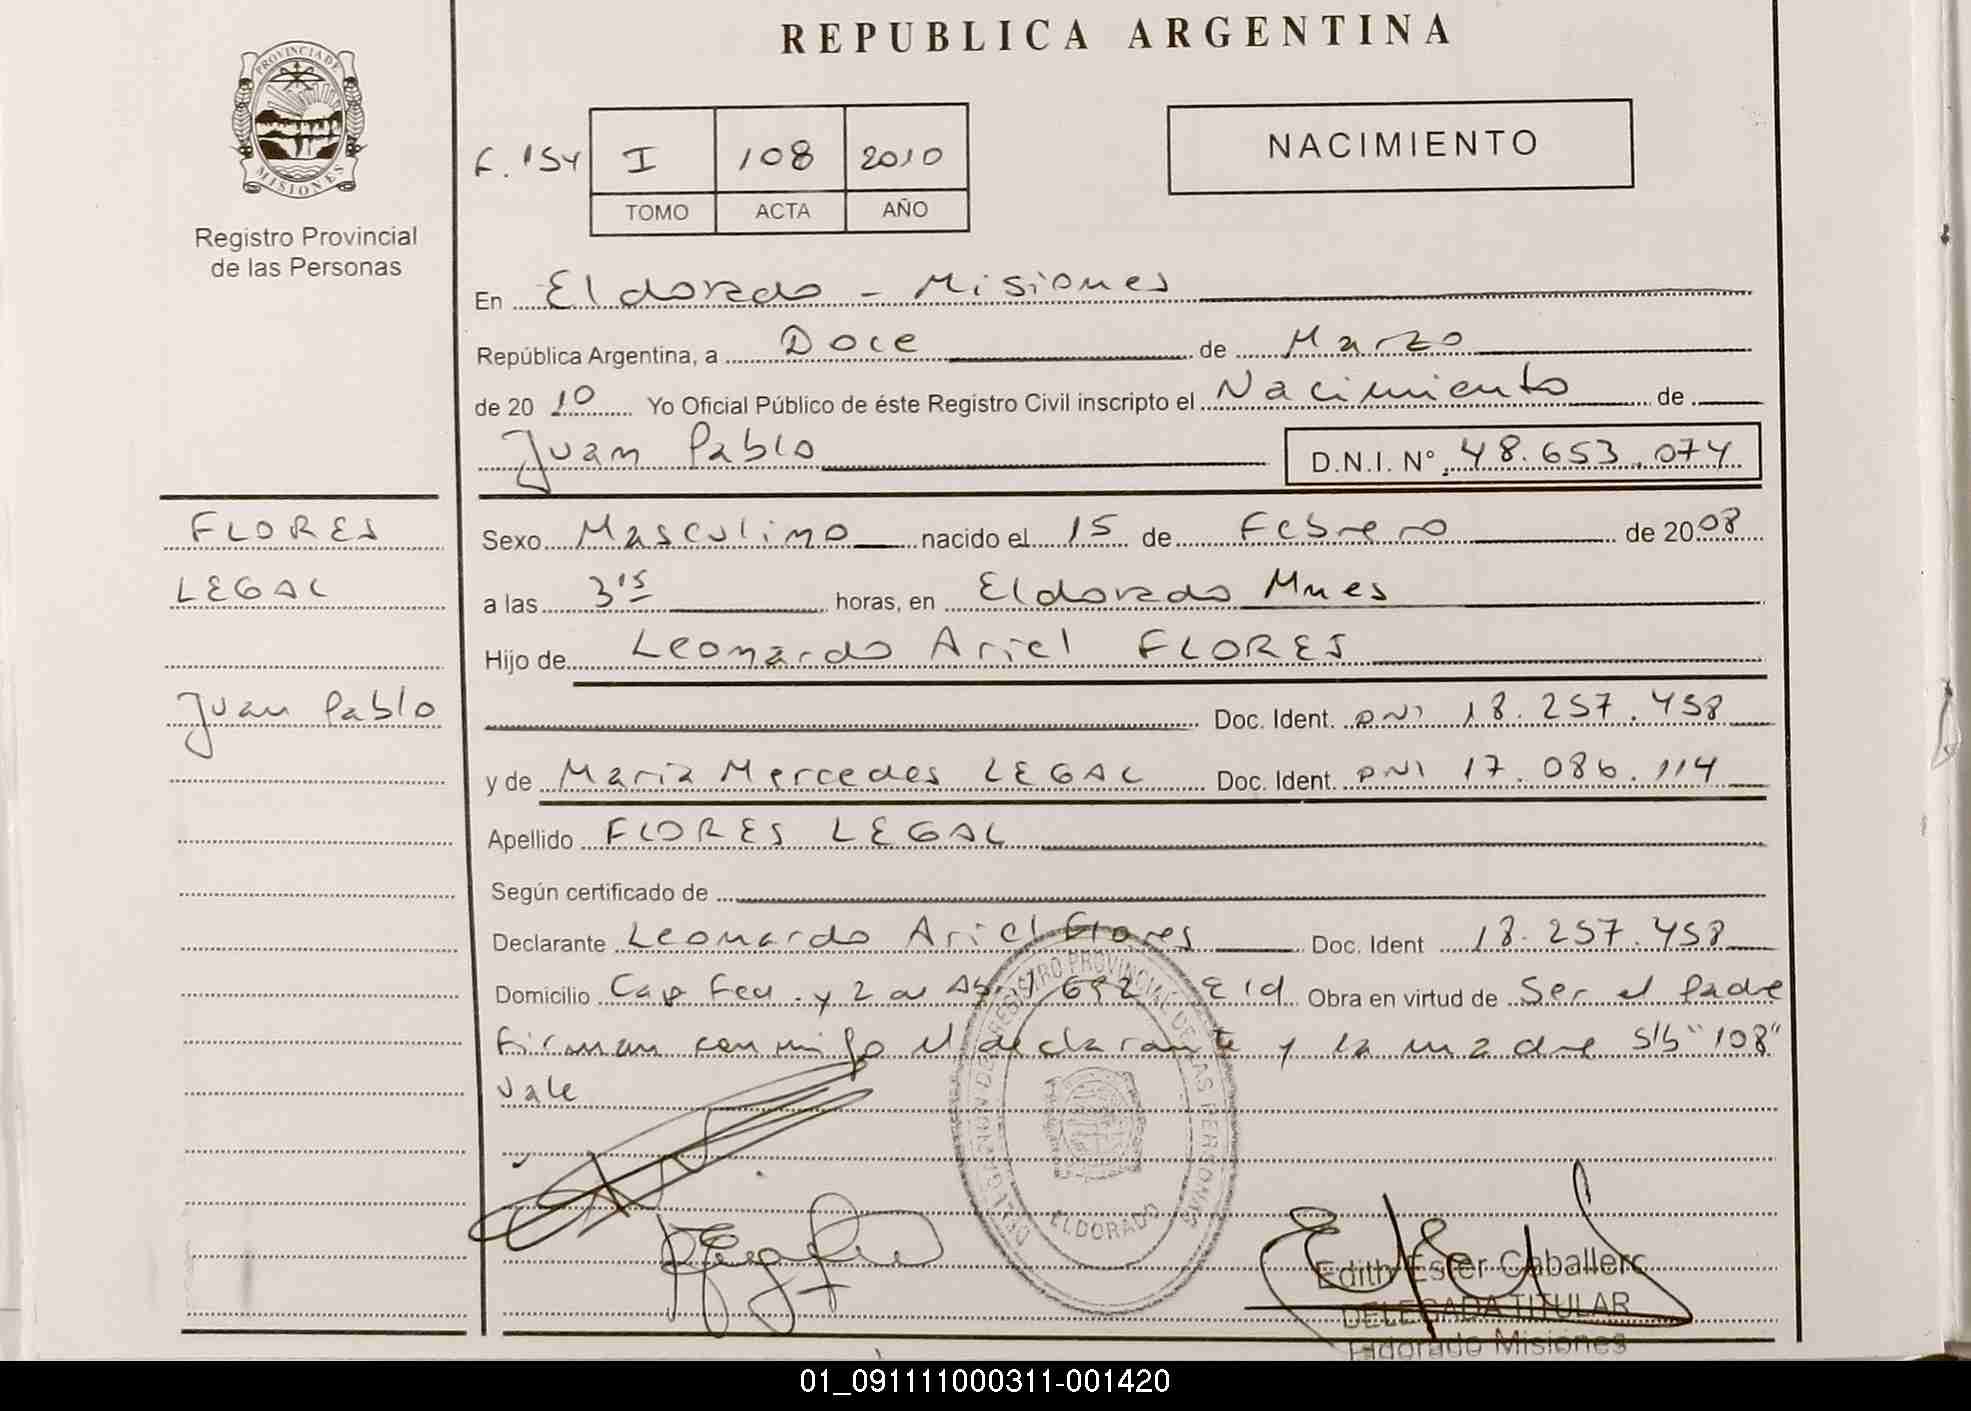 REPUBLICA ARGENTINA
PROVINCIA DE MISIONES
Registro Provincial
de las Personas
F. 154
I 108 2010
TOMO ACTA AÑO
NACIMIENTO
En Eldorado - Misiones
República Argentina, a Doce de Marzo
de 20 10 Yo Oficial Público de éste Registro Civil inscripto el Nacimiento de
Juan Pablo D.N.I. Nº 48.653.074
FLORES
LEGAL
Juan Pablo
Sexo Masculino nacido el 15 de Febrero de 2008
a las 3 15 horas, en Eldorado Mnes
Hijo de Leonardo Ariel FLORES
Doc. Ident. DNI 18.257.458
y de Maria Mercedes LEGAL Doc. Ident. DNI 17.086.114
Apellido FLORES LEGAL
Según certificado de
Declarante Leonardo Ariel Flores Doc. Ident 18.257.458
Domicilio Cap Fed. y 2 de 692 Eld Obra en virtud de Ser el Padre
Firman conmigo el declarante y la madre S/b "108"
Vale
DELEGACION DEL REGISTRO PROVINCIAL DE LAS PERSONAS
ELDORADO
Edith Ester Caballero
DELEGADA TITULAR
Eldorado Misiones
01_091111000311-001420